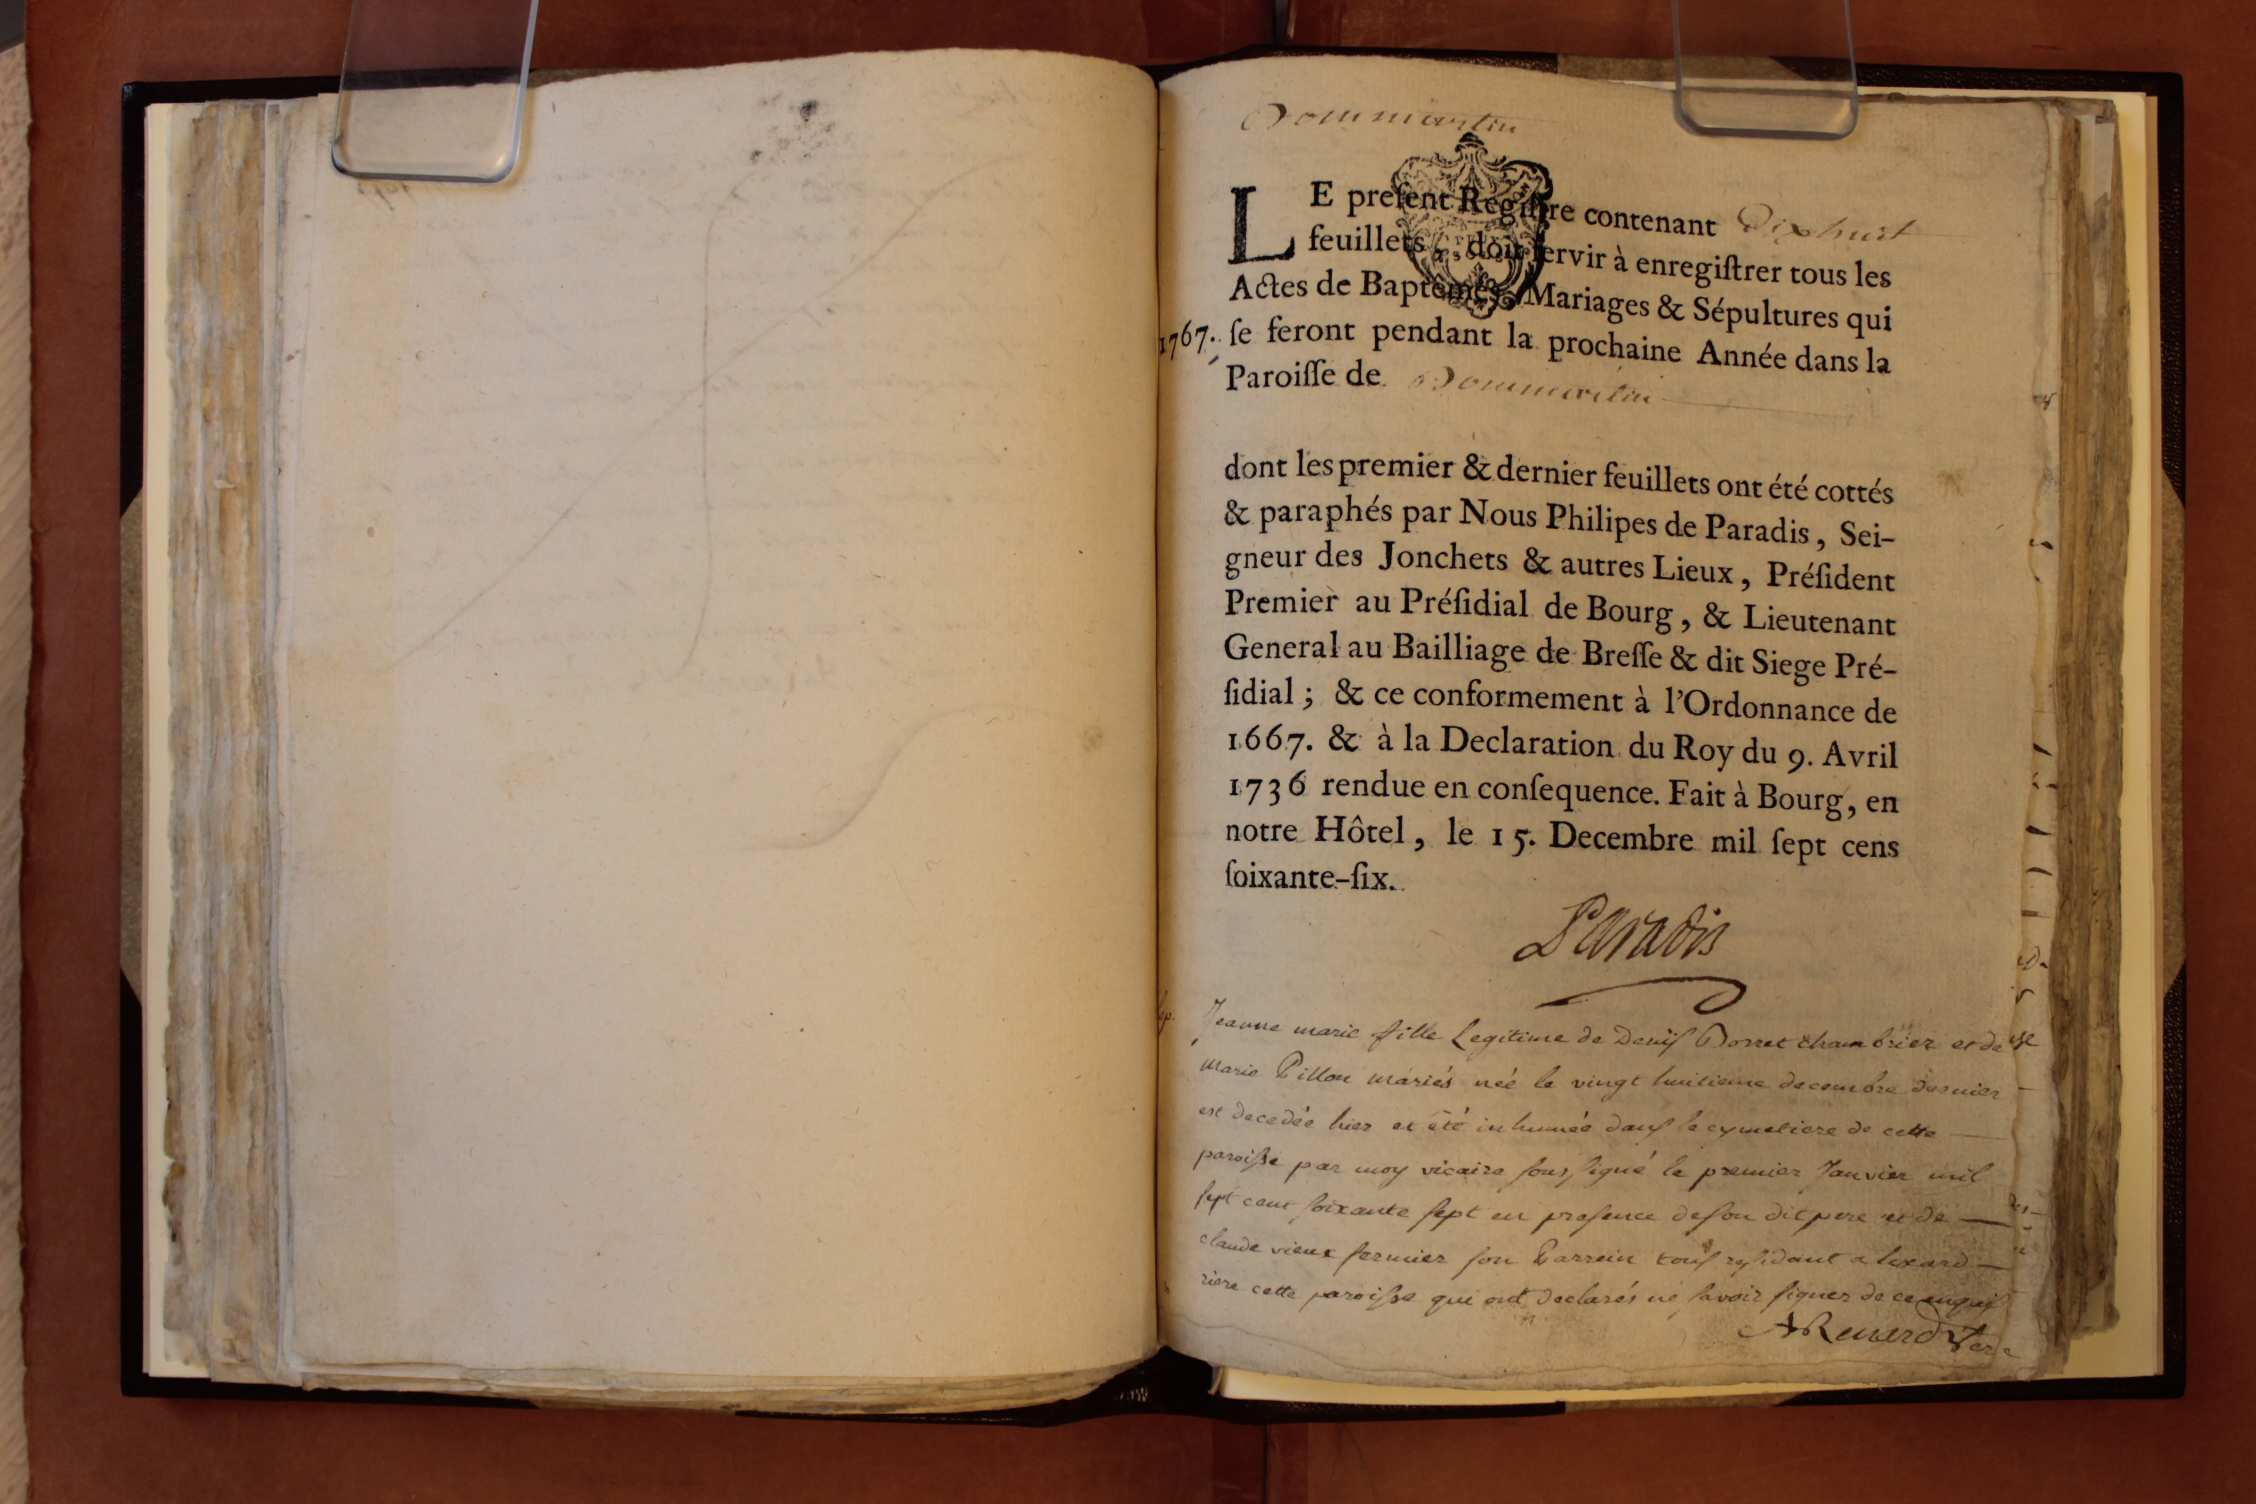 Dommartin
LE preſent Regiſtre contenant Dixhuit
feuillets, doit ſervir à enregiſtrer tous les
Actes de Baptêmes, Mariages & Sépultures qui
1767. ſe feront pendant la prochaine Année dans la
Paroiſſe de Dommartin
dont les premier & dernier feuillets ont été cottés
& paraphés par Nous Philipes de Paradis, Sei-
gneur des Jonchets & autres Lieux, Préſident
Premier au Préſidial de Bourg, & Lieutenant
General au Bailliage de Breſſe & dit Siege Pré-
ſidial; & ce conformement à l'Ordonnance de
1667. & à la Declaration du Roy du 9. Avril
1736 rendue en conſequence. Fait à Bourg, en
notre Hôtel, le 15. Decembre mil ſept cens
ſoixante-ſix.
Paradis
Jeanne marie fille Legitime de Denis Borret chambrier et de
Marie Pillon mariés née le vingt huitieme decembre dernier
est decedée hier et été inhumée dans le cymetiere de cette
paroisse par moy vicaire soussigné le premier Janvier mil
sept cent soixante sept en presence de son dit pere et de
claude vieux fermier son Parrein tous residant a
riere cette paroisse qui ont declarés ne savoir signer de ce enquis